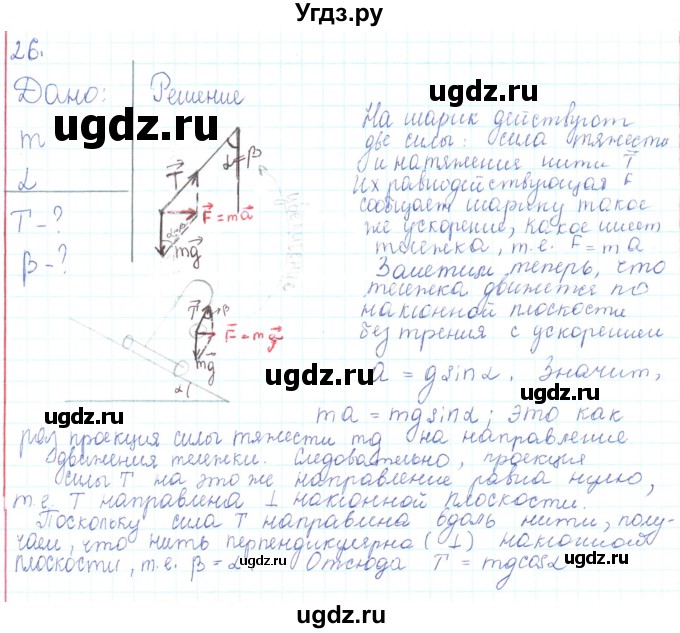 Угдз.ру
26.
Дано: Решение
m
α
T - ?
β - ?
T⃗
α=β
F⃗=ma⃗
mg⃗
На шарик действуют
две силы: сила тяжести
и натяжения нити T⃗
Их равнодействующая F
сообщает шарику такое
же ускорение, какое имеет
тележка, т.е. F = ma
Заметим теперь, что
тележка движется по
наклонной плоскости
без трения с ускорением
a = g sin α. Значит,
T⃗ β
F⃗=mg⃗
mg⃗
α
ma = mg sin α; это как
раз проекция силы тяжести mg на направление
движения тележки. Следовательно, проекция
силы T на это же направление равна нулю,
т.е. T направлена ⊥ наклонной плоскости.
Поскольку сила T направлена вдоль нити, полу-
чаем, что нить перпендикулярна (⊥) наклонной
плоскости, т.е. β = α Отсюда T = mg cos α
ugdz.ru
ugdz.ru
ugdz.ru
ugdz.ru
ugdz.ru
ugdz.ru
ugdz.ru
ugdz.ru
ugdz.ru
ugdz.ru
ugdz.ru
ugdz.ru